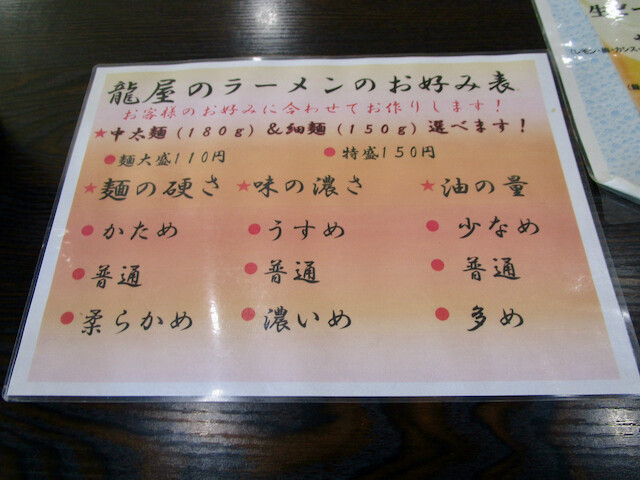 龍屋のラーメンのお好み表
お客様のお好みに合わせてお作りします！
★中太麺(180g)&細麺(150g)選べます！
●麺大盛110円 ●特盛150円
★麺の硬さ ★味の濃さ ★油の量
●かため ●うすめ ●少なめ
●普通 ●普通 ●普通
●柔らかめ ●濃いめ ●多め
生ビー
(レモン・梅・カシス・